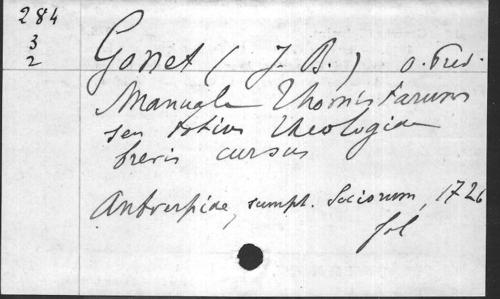 284
3
2
Gonet (J. B.) o. Pred.
Manuale Thomistarum
seu totius theologiae
brevis cursus
Antverpiae, sumpt. Sociorum, 1726
fol